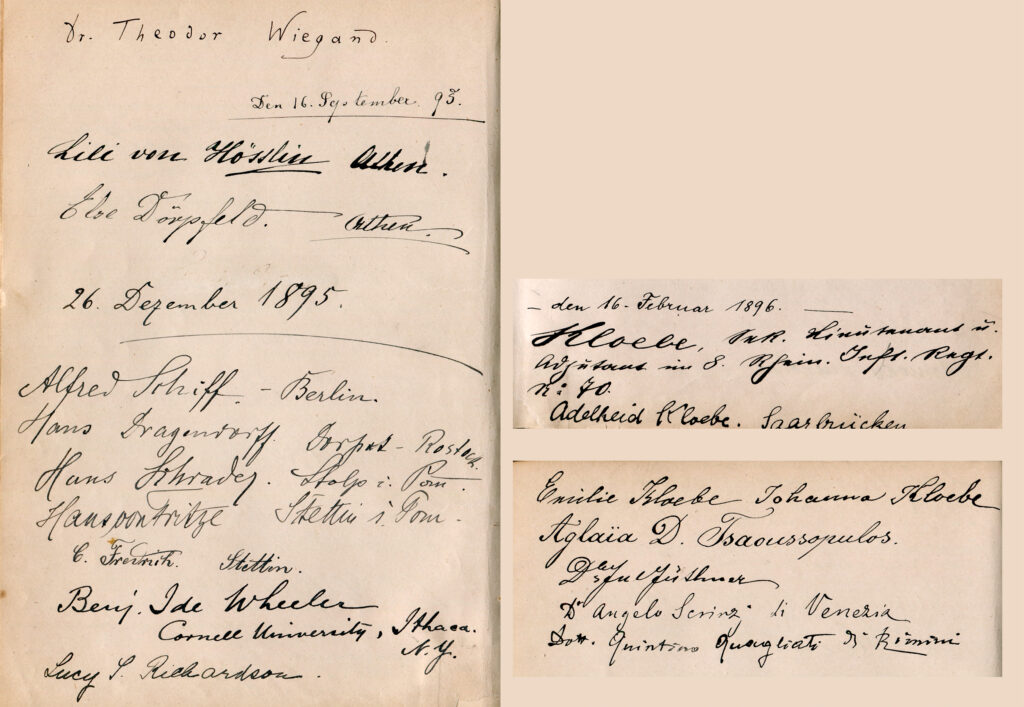 Dr. Theodor Wiegand.
Den 16. September. 93.
Lili von Hösslin Athen.
Else Dörpfeld. Athen.
26. Dezember 1895.
Alfred Schiff. – Berlin.
Hans Dragendorff. Dorpat – Rostock.
Hans Schrader. Stolp i. Pom.
Hans von Fritze Stettin i. Pom.
C. Fredrich. Stettin.
Benj. Ide Wheeler
Cornell University, Ithaca.
N.Y.
Lucy S. Richardson.
– den 16. Februar 1896. —
Kloebe, Sek. Lieutenant u.
Adjutant im 8. Rhein. Inft. Regt.
N: 70.
Adelheid Kloebe. Saarbrücken
Emilie Kloebe Johanna Kloebe
Aglaïa D. Tsaoussopulos.
Dr Jul Jüthner
Dr Angelo Scrinzi di Venezia
Dott. Quintino Quagliati di Rimini